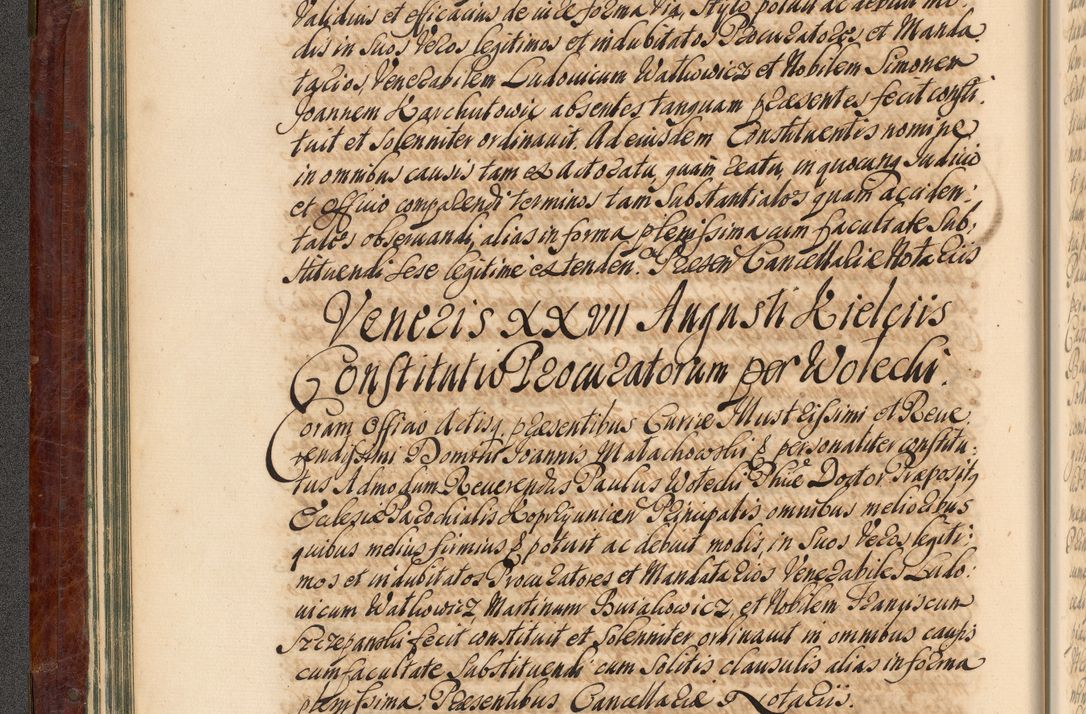 validius et efficacius de iure forma via, stylo potuit ac debuit mo-
dis in Suos Veros legitimos et indubitatos Procuratores et Manda
tarios, Venerabilem Ludovicum Watlowicz et Nobilem Simonem
Joannem Karchutowic absentes tanquam praesentes fecit consti-
tuit et Solenniter ordinavit. Ad eiusdem Constituentis nomine
in omnibus causis tam ex actoratu, quam reatu, in quocunq Iudicio
et Officio comparendi terminos tam Substantiales quam acciden:
tales observandi, alias in forma plenissima cum facultate Sub:
stituendi sese legitime extenden. Praesen Cancellariae Notariis
Veneris XXVII Augusti Kielciis
Constitutio Procuratorum per Wotechi.
Coram Officio Actisq praesentibus Curiae Illustrissimi et Reve
rendissimi Domini Joannis Malachowski & personaliter constitu:
tus Admodum Reverendus Paulus Wotechi Phiae Doctor Praeposity
Eclesiae Parochialis Koprzyunicen Principalis omnibus melioribus
quibus melius firmius & potuit ac debuit modis, in Suos Veros legiti:
mos et indubitatos Procuratores et Mandatarios Venerabiles Ludo:
vicum Watlowicz, Martinum Buiakowicz, et Nobilem Franciscum
Szczepanski fecit constituit et Solenniter ordinavit in omnibus causis
cum facultate Substituendi cum Solitis clausulis alias in forma
plenissima. Praesentibus Cancellariae Notariis.